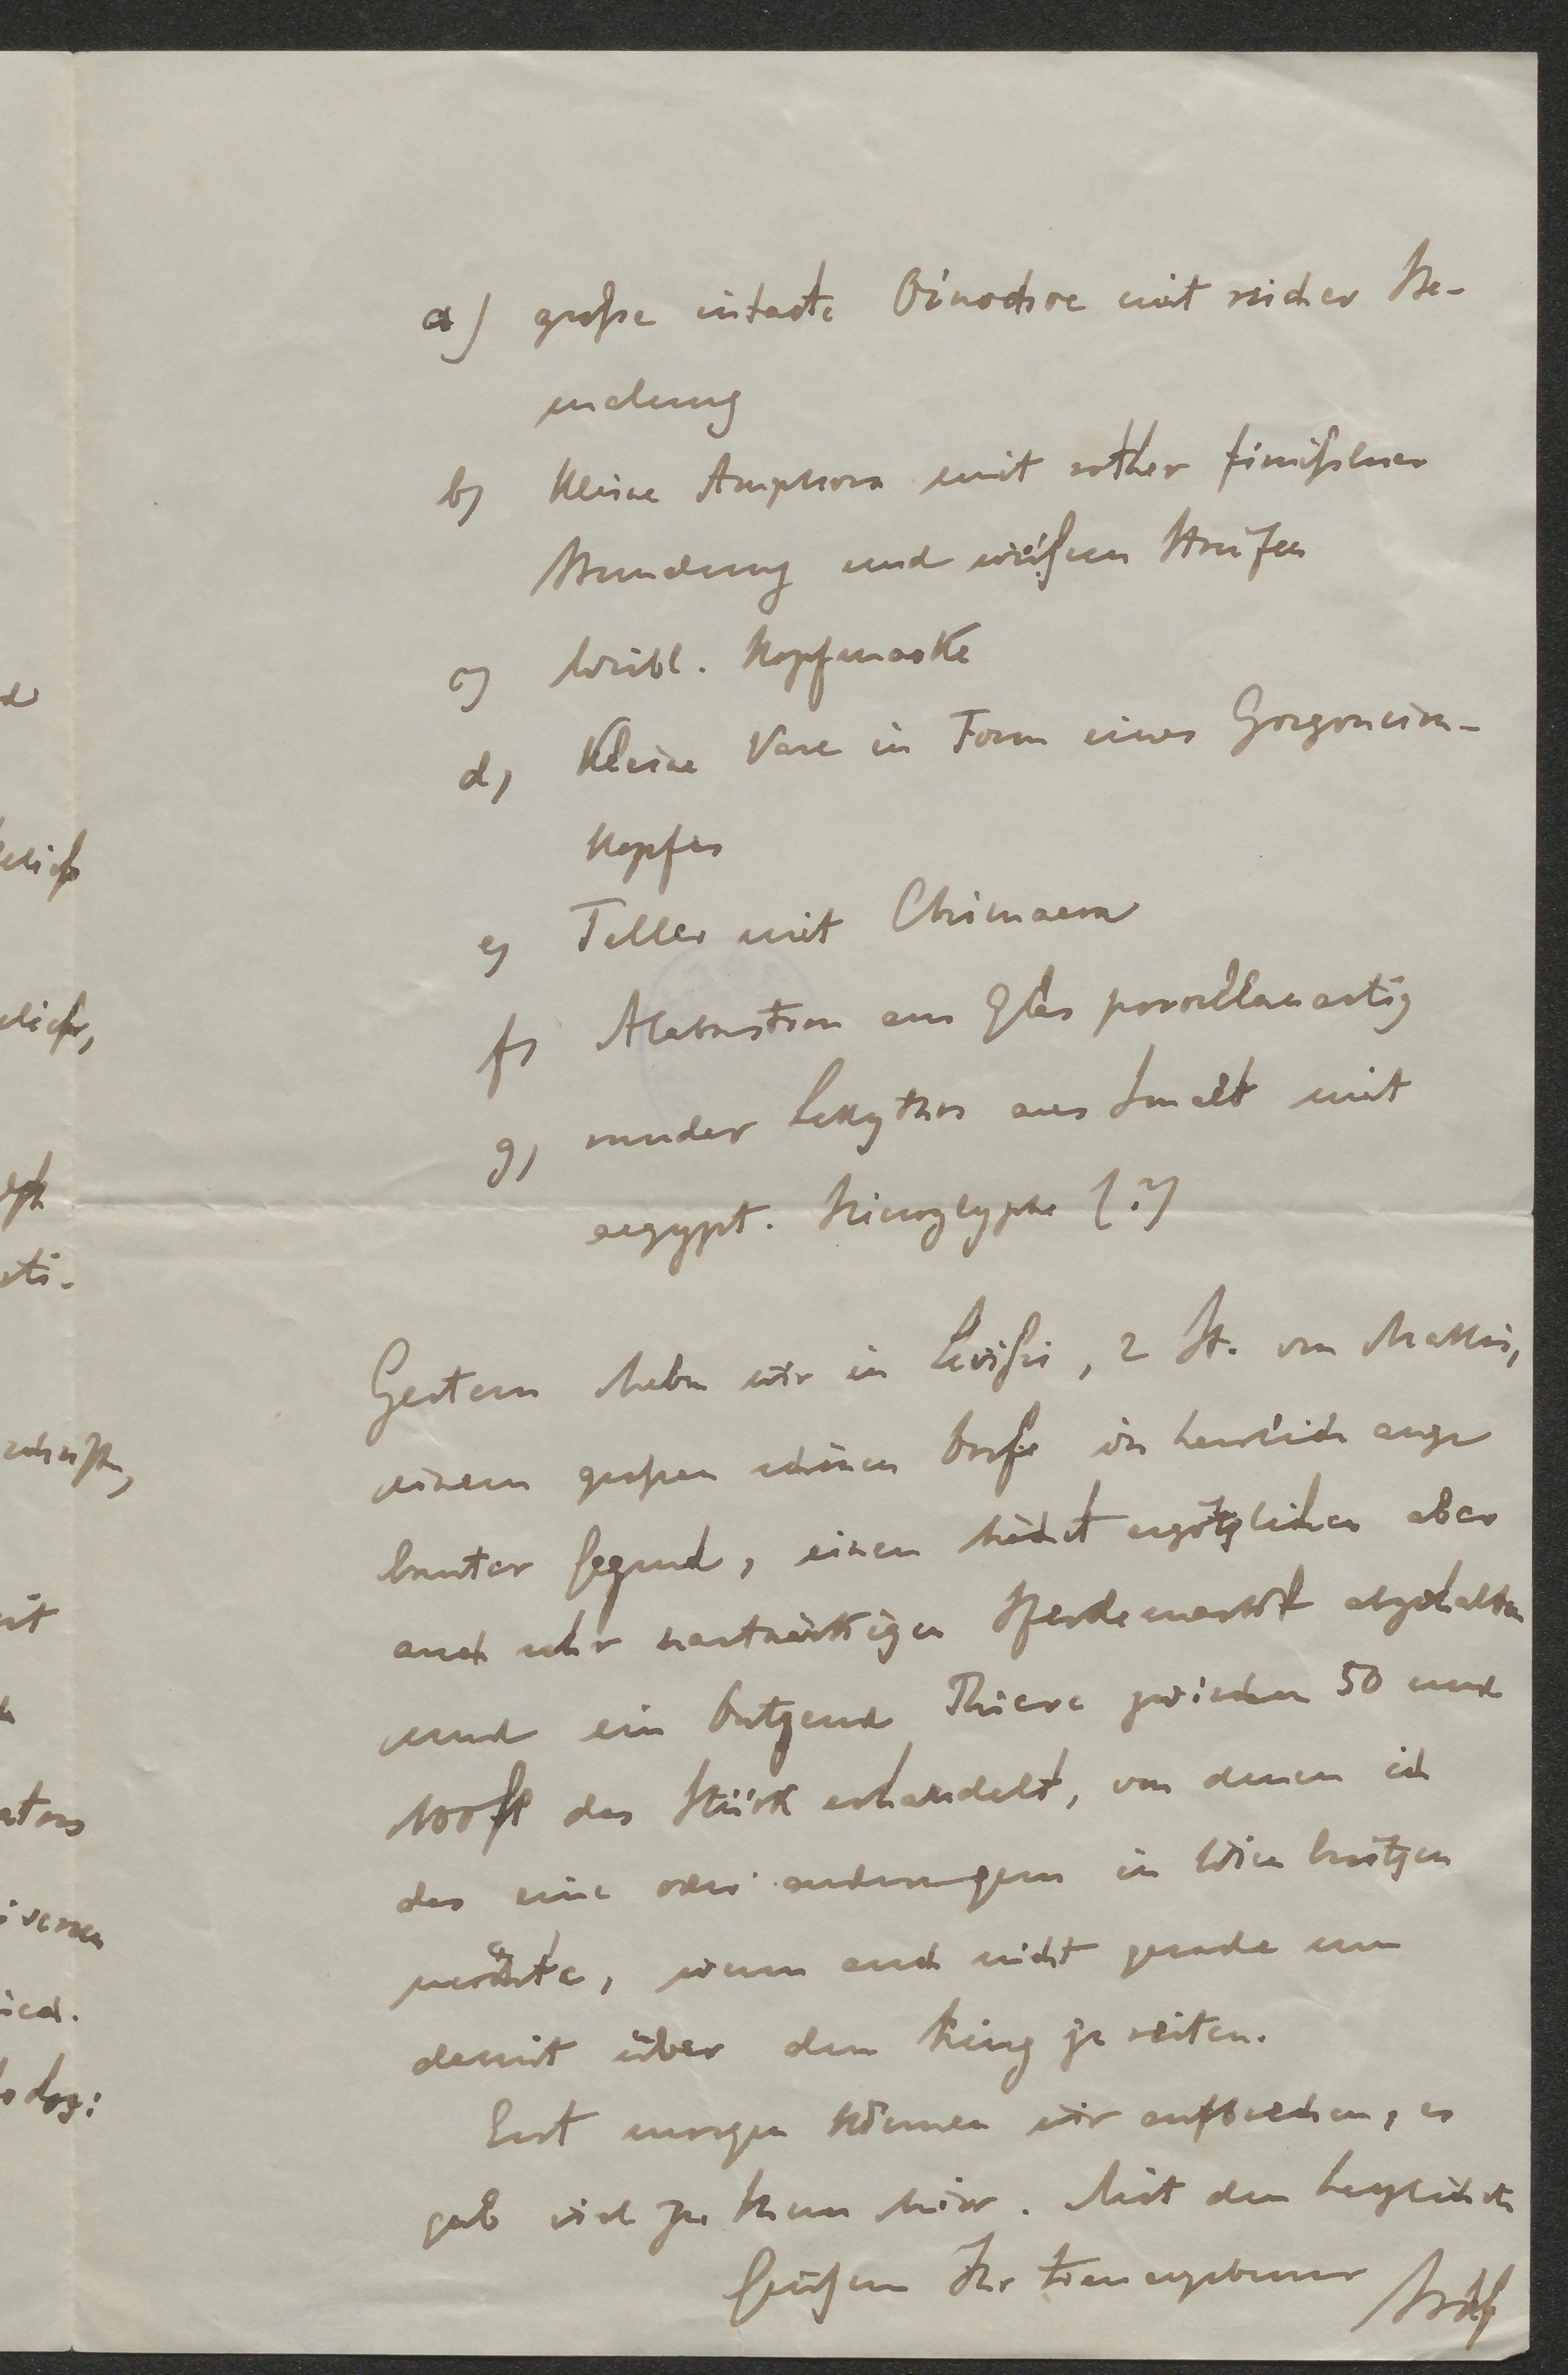 a) große intacte Oinochoe mit reicher Be-
malung
b) kleine Amphora mit rother firnißener
Mundung und weißen Streifen
c) Weibl. Kopfmaske
d) Kleine Vase in Form eines Gorgoneion-
kopfes
e) Teller mit Chimaera
f) Alabastron aus Glas porcellanartig
g) runder Lekythos aus Smalt mit
aegypt. Hieroglyphe (?)
Gestern haben wir in Levißi, 2 St. von Makri,
einem großen schönen Dorfe in herrlich ange
bauter Gegend, einen höchst ergötzlichen aber
auch sehr hartnäckigen Pferdemarkt abgehalten
und ein Dutzend Thiere zwischen 50 und
100 fl das Stück erhandelt, von denen ich
das eine oder andere gern in Wien besitzen
möchte, wenn auch nicht gerade um
damit über den Ring zu reiten.
Erst morgen können wir aufbrechen, es
gab viel zu thun hier. Mit den herzlichsten
Grüßen Ihr treu ergebener
d
elich
eti.
it
ators